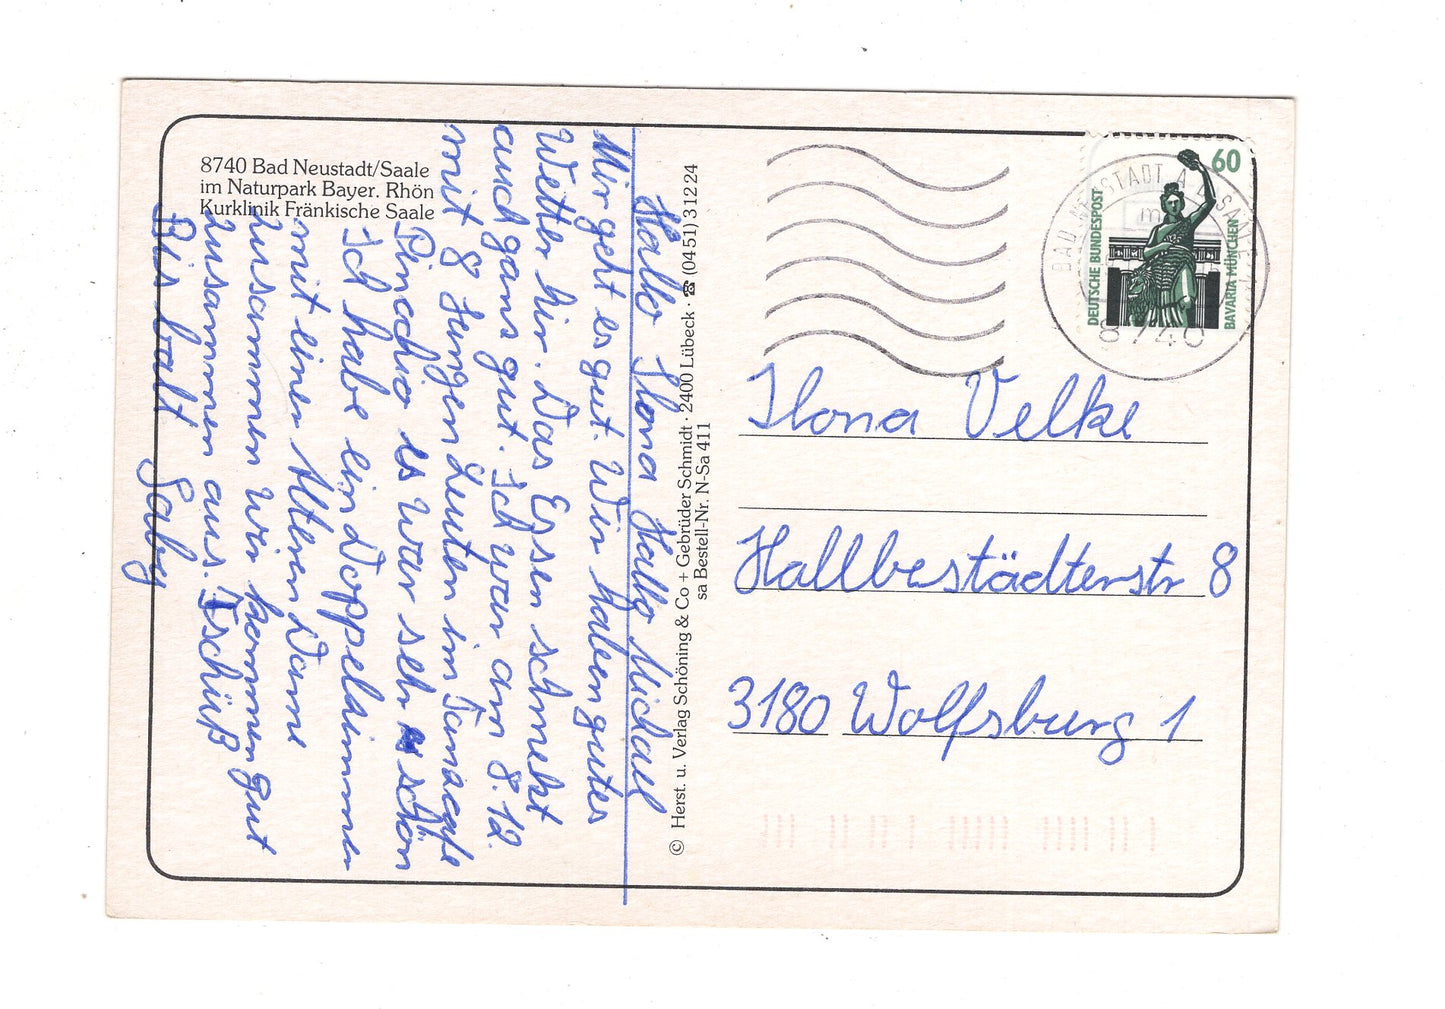 8740 Bad Neustadt/Saale
im Naturpark Bayer. Rhön
Kurklinik Fränkische Saale
Hallo Ilona Hallo Michael
Mir geht es gut. Wir haben gutes
Wetter hir. Das Essen schmekt
auch gans gut. Ich war am 8.12.
mit 8 Jungen Leuten im Tanzcafe
Pinochio es war sehr schön
Ich habe ein Doppelzimmer
mit einer Älteren Dame
zusammen wir kommen gut
zusammen aus. Tschüß
Bis balt Gaby
© Herst. u. Verlag Schöning & Co + Gebrüder Schmidt · 2400 Lübeck · ☎ (04 51) 3 12 24
sa Bestell-Nr. N-Sa 411
60
DEUTSCHE BUNDESPOST
BAVARIA MÜNCHEN
BAD NEUSTADT A D SAALE
8740
Ilona Velke
Hallbestädterstr 8
3180 Wolfsburg 1